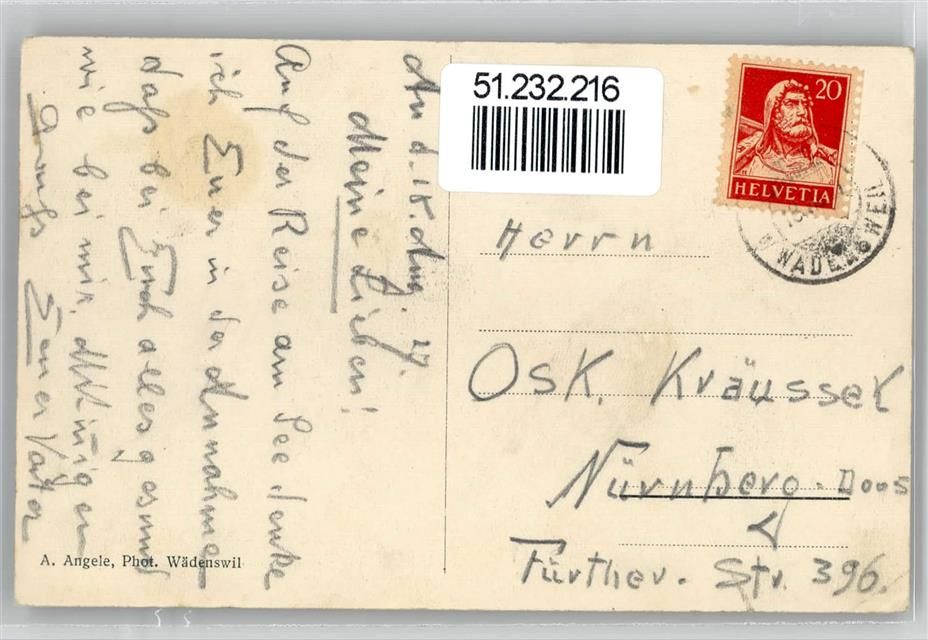 An d. 18. Aug. 27.
Meine Lieben!
Auf der Reise am See denke
ich Euer in der Annahme
daß bei Euch alles gesund
wie bei mir.
Euer Vater
A. Angele, Phot. Wädenswil
51.232.216
20
HELVETIA
WÄDENSWIL
Herrn
Osk. Kräussel
Nürnberg-Doos
Fürther. Str. 396.